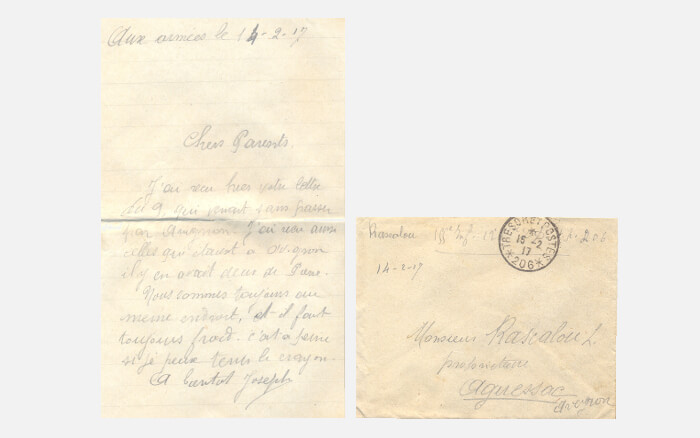 Aux armées le 14-2-17
Chers Parents.
J'ai reçu hier votre lettre
du 9 qui venait sans passer
par Aveyron. J'ai reçu aussi
celles qui étaient à
il y en avait deux de
Nous sommes toujours au
meme endroit, et il fait
toujours froid. c'est a peine
si je peux tenir le crayon.
A bientot Joseph
Rascalou
TRESOR ET POSTES
15-2
17
*206*
14-2-17
Monsieur Rascalou L.
propriétaire
Aguessac
Aveyron